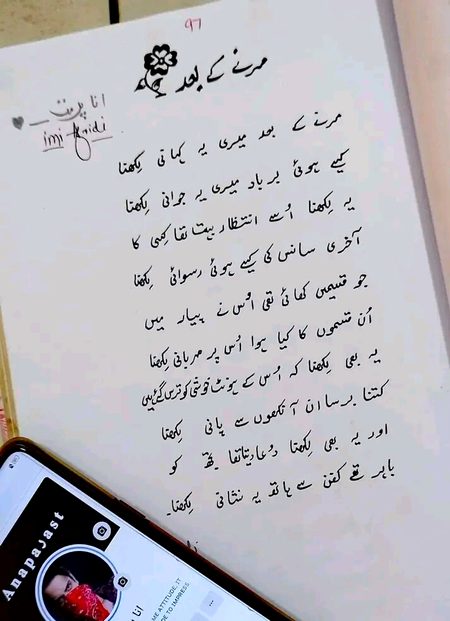 97
مرنے کے بعد
انا پرست
imi faridi
مرنے کے بعد میری یہ کہانی لِکھنا
کیسے ہوئی برباد میری یہ جوانی لِکھنا
یہ لِکھنا اُسے انتظار بہت تھا کِسی کا
آخری سانس کی کیسے ہوئی رسوائی لِکھنا
جو قسمیں کھائی تھی اُس نے پیار میں
اُن قسموں کا کیا ہوا اُس پر مہربانی لِکھنا
یہ بھی لِکھنا کہ اُس کے ہونٹ خوشی کو ترس گئے ہیں
کتنا برسا ان آنکھوں سے پانی لِکھنا
اور یہ بھی لِکھنا دُعا دیتا تھا تجھ کو
باہر تھے کفن سے ہاتھ یہ نشانی لِکھنا۔
Anapajast
ME ATTITUDE, IT
TO IMPRESS.
انا